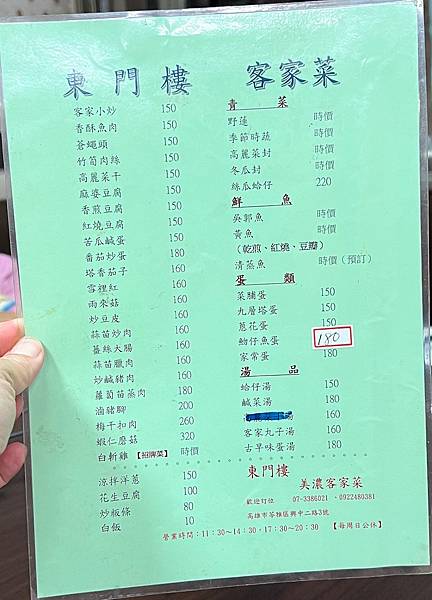 東門樓 客家菜
客家小炒 150
香酥魚肉 150
蒼蠅頭 150
竹筍肉絲 150
高麗菜干 150
麻婆豆腐 150
香煎豆腐 150
紅燒豆腐 150
苦瓜鹹蛋 150
番茄炒蛋 180
塔香茄子 160
雪裡紅 160
雨來菇 160
炒豆皮 160
蒜苗炒肉 160
薑絲大腸 160
蒜苗臘肉 160
炒鹹豬肉 160
蘿蔔苗蒸肉 180
滷豬腳 200
梅干扣肉 260
蝦仁蘑菇 320
白斬雞【招牌菜】 時價
涼拌洋蔥 150
花生豆腐 100
炒粄條 80
白飯 10
青菜
野蓮 時價
季節時蔬 時價
高麗菜封 時價
冬瓜封 時價
絲瓜蛤仔 220
鮮魚
吳郭魚 時價
黃魚 時價
(乾煎、紅燒、豆瓣)
清蒸魚 時價(預訂)
蛋類
菜脯蛋 150
九層塔蛋 150
蔥花蛋 150
魩仔魚蛋 180
家常蛋 180
湯品
蛤仔湯 150
鹹菜湯 180
160
客家丸子湯 160
古早味蛋湯 180
東門樓
美濃客家菜
歡迎訂位 07-3386021 、0922480381
高雄市苓雅區興中二路3號
營業時間:11:30~14:30,17:30~20:30 【每周日公休】